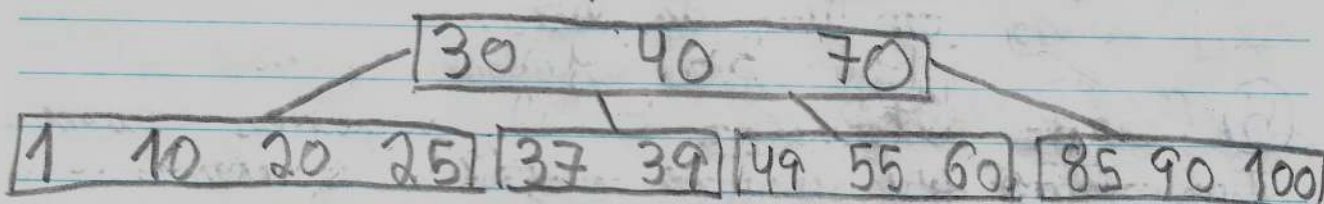 30 40 70
1 10 20 25 37 39 49 55 60 85 90 100